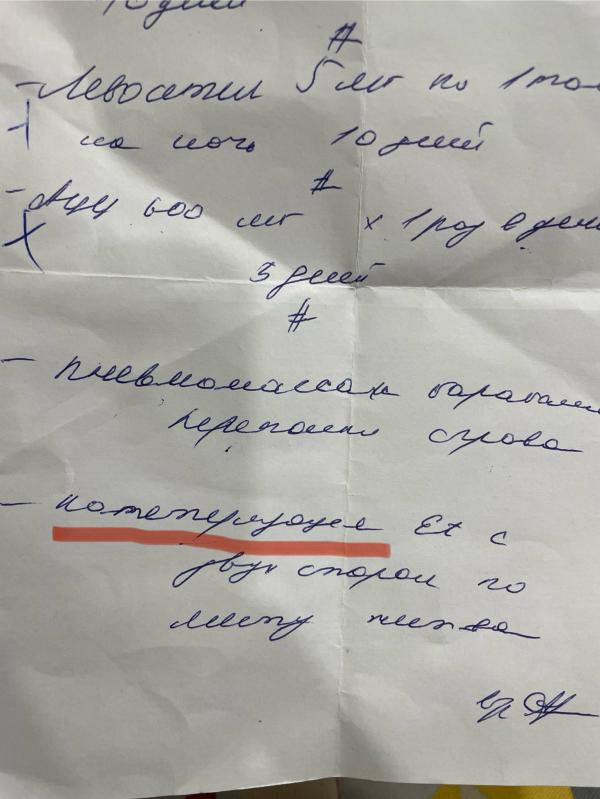 10 дней
#
- Левосетил 5 мг по 1 таб
на ночь 10 дней
#
- АЦЦ 600 мг х 1 раз в день
5 дней
#
- пневмомассаж барабанн
перепонки справа
- катетеризация Et с
двух сторон по